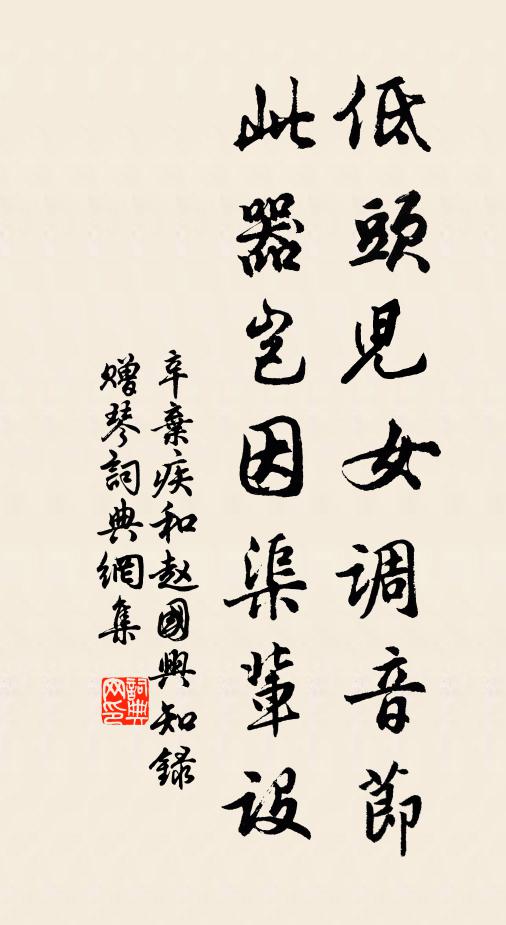 低頭児女调音節
此器岂因渠輩設
辛棄疾和赵國興知録
赠琴詞典網集
詞典网印